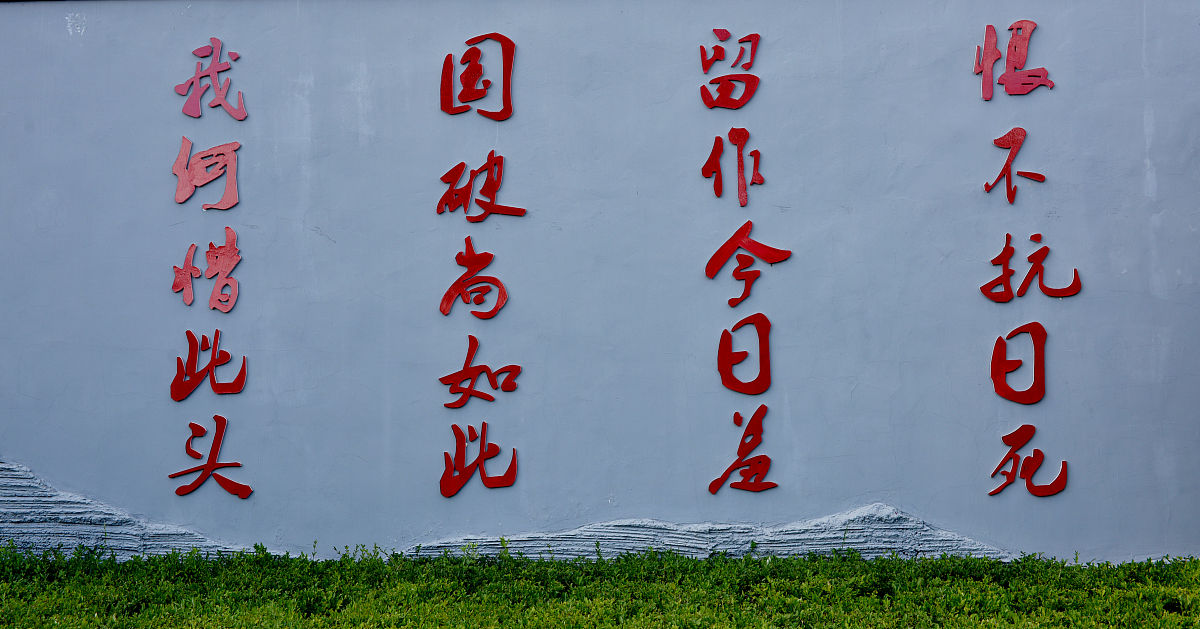 恨不抗日死
留作今日羞
国破尚如此
我何惜此头